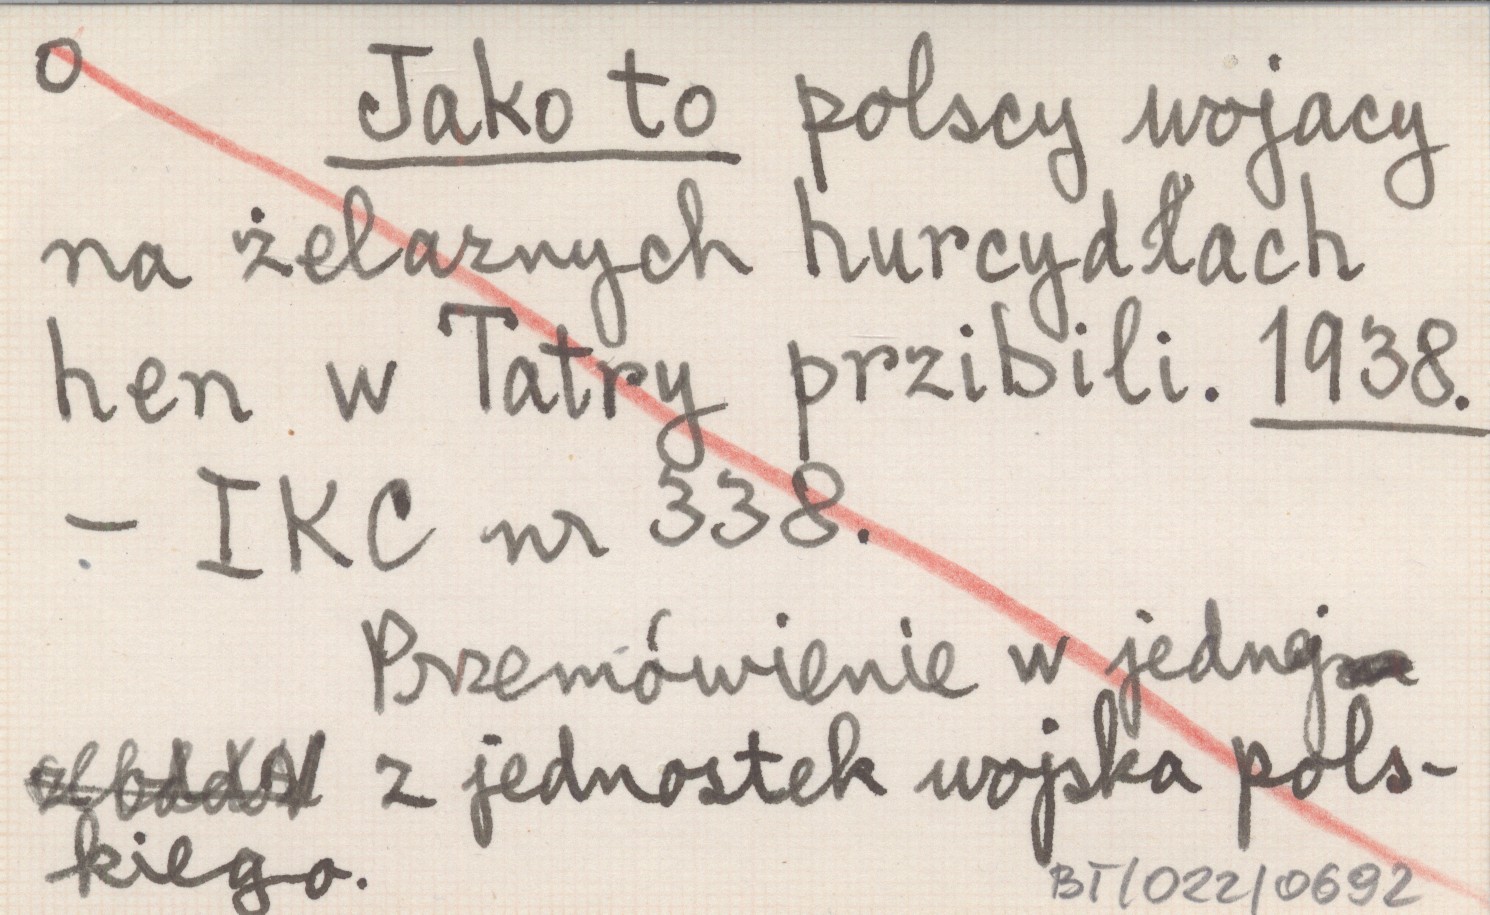 o Jako to polscy wojacy
na żelaznych hurcydłach
hen w Tatry przibili. 1938.
– IKC nr 338.
Przemówienie w jednej
z jednostek wojska pols-
kiego.
BT/022/0692